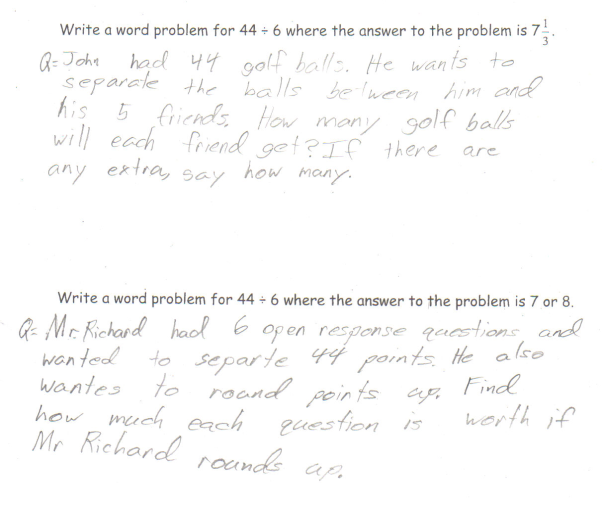 Write a word problem for 44 ÷ 6 where the answer to the problem is 7 1/3.
Q= John had 44 golf balls. He wants to
separate the balls between him and
his 5 friends. How many golf balls
will each friend get? If there are
any extra, say how many.
Write a word problem for 44 ÷ 6 where the answer to the problem is 7 or 8.
Q= Mr. Richard had 6 open response questions and
wanted to separte 44 points. He also
wantes to round points up. Find
how much each question is worth if
Mr Richard rounds up.